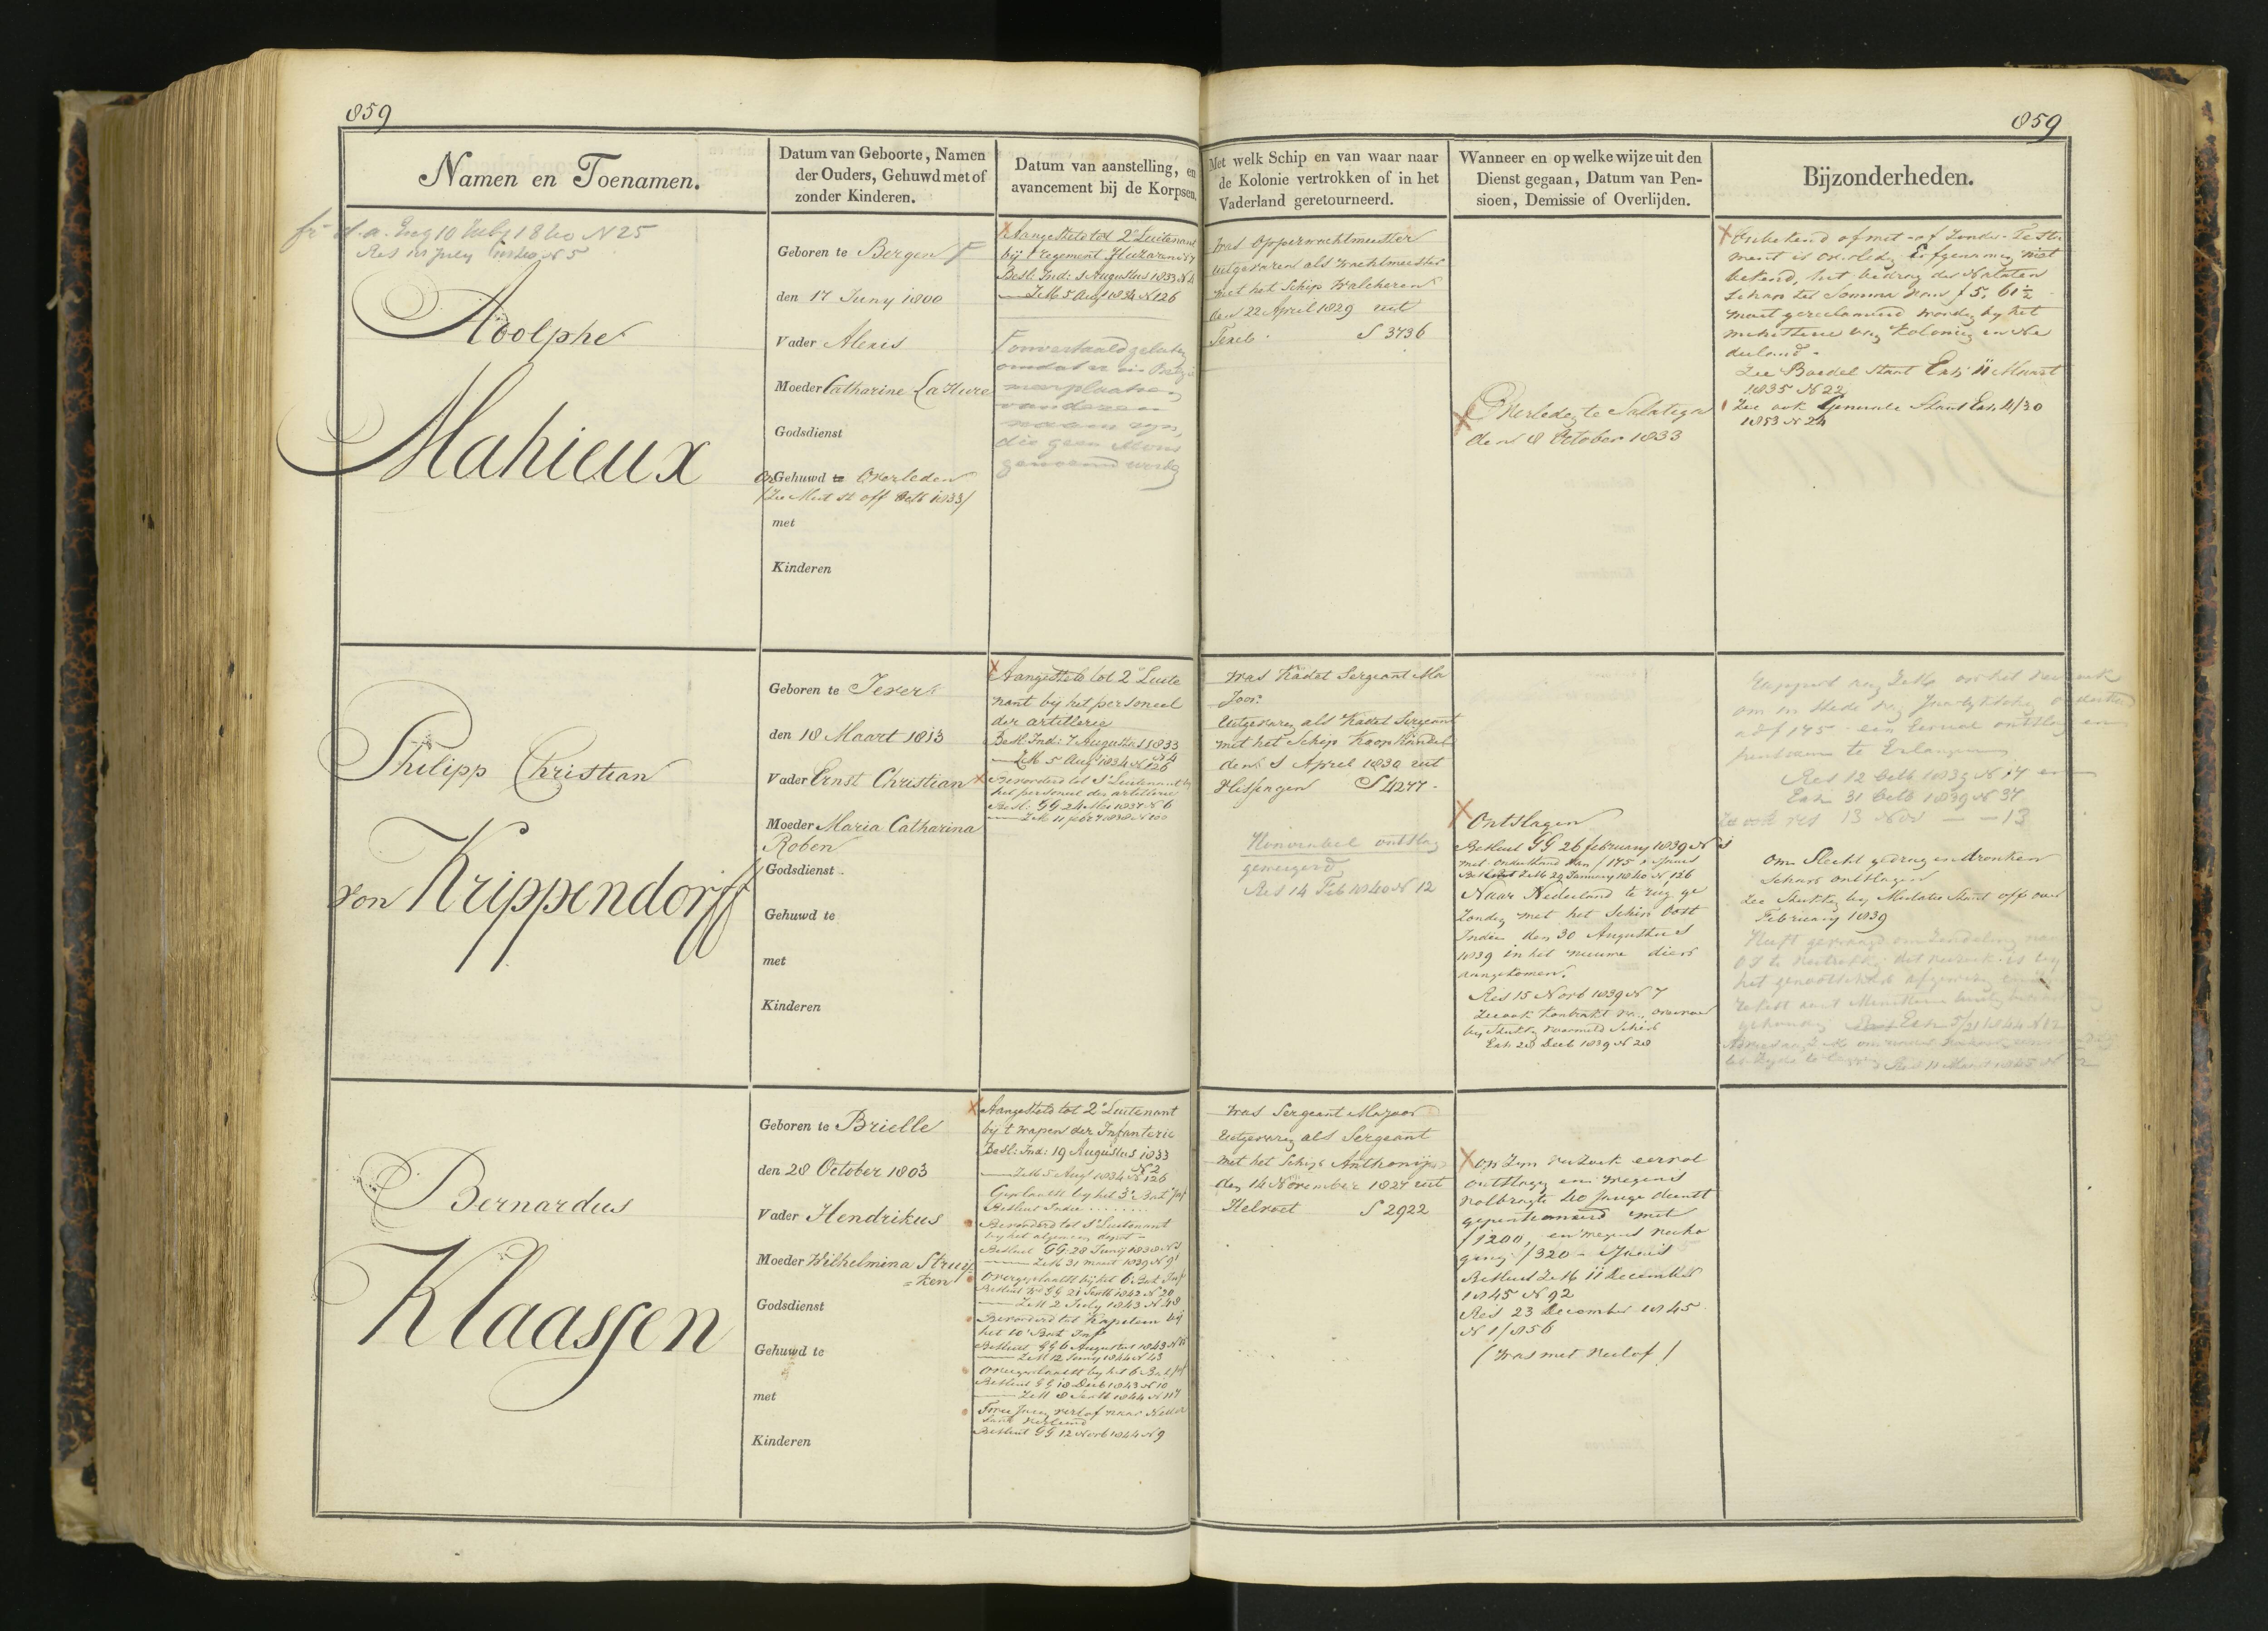 859
859
Namen en Toenamen.
Datum van Geboorte, Namen
der Ouders, Gehuwd met of
zonder Kinderen.
Datum van aanstelling, en
avancement bij de Korpsen.
Met welk Schip en van waar naar
de Kolonie vertrokken of in het
Vaderland geretourneerd.
Wanneer en op welke wijze uit den
Dienst gegaan, Datum van Pen-
sioen, Demissie of Overlijden.
Bijzonderheden.
10 July 1840 N 25
Adolphe
Mahieux
Geboren te Bergen F
den 17 Juny 1800
Vader Alexis
Moeder Catharine La Hure
Godsdienst
Gehuwd te Overleden
met
Kinderen
Aangesteld tot 2e Luitenant
bij 't regement Huzaren N 7
Besl: Ind: 3 Augustus 1833 N 4
ZM 5 Aug 1834 N 126
F onvertaald gelaten
omdat er in
meer plaatsen
van dezen
naam zyn,
die geen Mons
genoemd
was opperwachtmeester
uitgevaren als wachtmeester
met het Schip Walcheren
den 22 April 1829 uit
Texel. S 3736
Overleden te Salatiga
den 8 October 1833
Onbekend of met of zonder Testa
ment is overleden Erfgenamen niet
bekend, het bedrag der Nalaten
schap ter Somma van f 5, 61½
moet gereclameerd worden by het
ministerie van Kolonien en Ne
derland.
Zie Boedel Staat Exh: 11 Maart
1835 N 22
Zie ook Generale Staat Exh 4/30
1853 N 24
Philipp Christian
von Krippendorff
Geboren te Jever
den 18 Maart 1813
Vader Ernst Christian
Moeder Maria Catharina
Roben
Godsdienst
Gehuwd te
met
Kinderen
Aangesteld tot 2e Luite
nant bij het personeel
der artillerie
Besl: Ind: 7 Augustus 1833
N 4
ZM 5 Aug 1834 N 126
Bevorderd tot 1e Luitenant by
het personeel der artillerie
Besl: GG 24 1837 N 6
ZM 11 1838 N 100
was Kadet Sergeant Ma
joor
Uitgevaren als Kadet Sergeant
met het Schip Koophandel
den 1 April 1830 uit
Vlissingen S 4277.
Honorabel ontslag
geweigerd
Res 14 Feb 1840 N 12
Ontslagen
Besluit GG 26 february 1839 N
met onderstand van f 175
Besluit ZM 29 January 1840 N 126
Naar Nederland te rug ge
zonden met het Schip Oost
Indie den 30 Augustus
1839 in het nieuwe diep
aangekomen.
Res 15 Novb 1839 N 7
Zie ook Kontrakt
Exh 28 Decb 1839 N 28
om in stede van
ad f 175 een Eervol ontslag en
pensioen te Erlangen
Res 12 Octb 1839 N 17 en
Exh 31 Octb 1839 N 37
Zie ook res 13 Nov — — 13
om Slecht gedrag en dronken
schap ontslagen
Zie Stukken by Mutatie Staat off over
February 1839
Bernardus
Klaassen
Geboren te Brielle
den 28 October 1803
Vader Hendrikus
Moeder Wilhelmina Struy
=ken
Godsdienst
Gehuwd te
met
Kinderen
Aangesteld tot 2e Luitenant
bij 't wapen der Infanterie
Besl: Ind: 19 Augustus 1833
N 2
ZM 5 Aug 1834 N 126
Geplaatst by het 3e Bat Inf
Besluit Indie
Bevorderd tot 1e Luitenant
by het algemeen depot
Besluit GG: 28 Junij 1838 N 1
ZM 31 maart 1839 N 91
Overgeplaatst bij het 6 Bat Inf
Besluit GG 21 Septb 1842 N 20
ZM 2 July 1843 N 48
Bevorderd tot Kapitein bij
het 10e Bat Inf
Besluit GG 6 Augustus 1843 N
ZM 12 Juny 1844 N 43
overgeplaatst by het 6 Bat Inf
Besluit GG 18 Decb 1843 N 10
ZM 8 Septb 1844 N 117
Twee Jaren verlof naar Neder
land verleend
Besluit GG 12 Novb 1844 N 9
was Sergeant Majoor
Uitgevaren als Sergeant
met het Schip Anthonij
den 14 November 1827 uit
Helvoet S 2922
op Zyn verzoek eervol
ontslagen en wegens
volbragte 40 jarige dienst
gepensioneerd met
f 1200, en wegens verho
ging f 320 - 's Jaars
Besluit ZM 11 December
1845 N 92
Res 23 December 1845
N 1/856
(was met verlof)